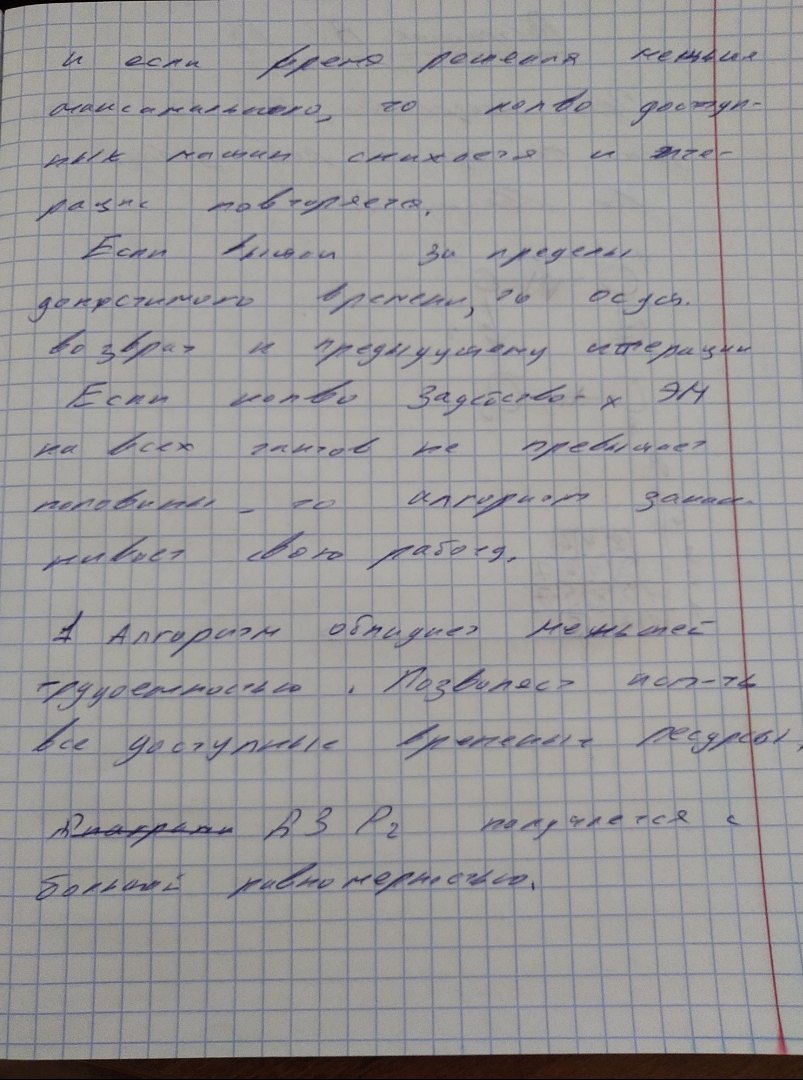 и если время решения меньше
максимального, то колво доступ-
ных машин снижается и ите-
рация повторяется.
Если вышли за пределы
допустимого времени, то осущ.
возврат к предыдущему итерации
Если колво задейство-х ЭМ
на всех тактов не превышает
половины, то алгоритм закан-
чивает свою работу.
1 Алгоритм обладает меньшей
трудоемкостью. Позволяет исп-ть
все доступные временные ресурсы.
ДЗ Р2 получается с
большей равномерностью.